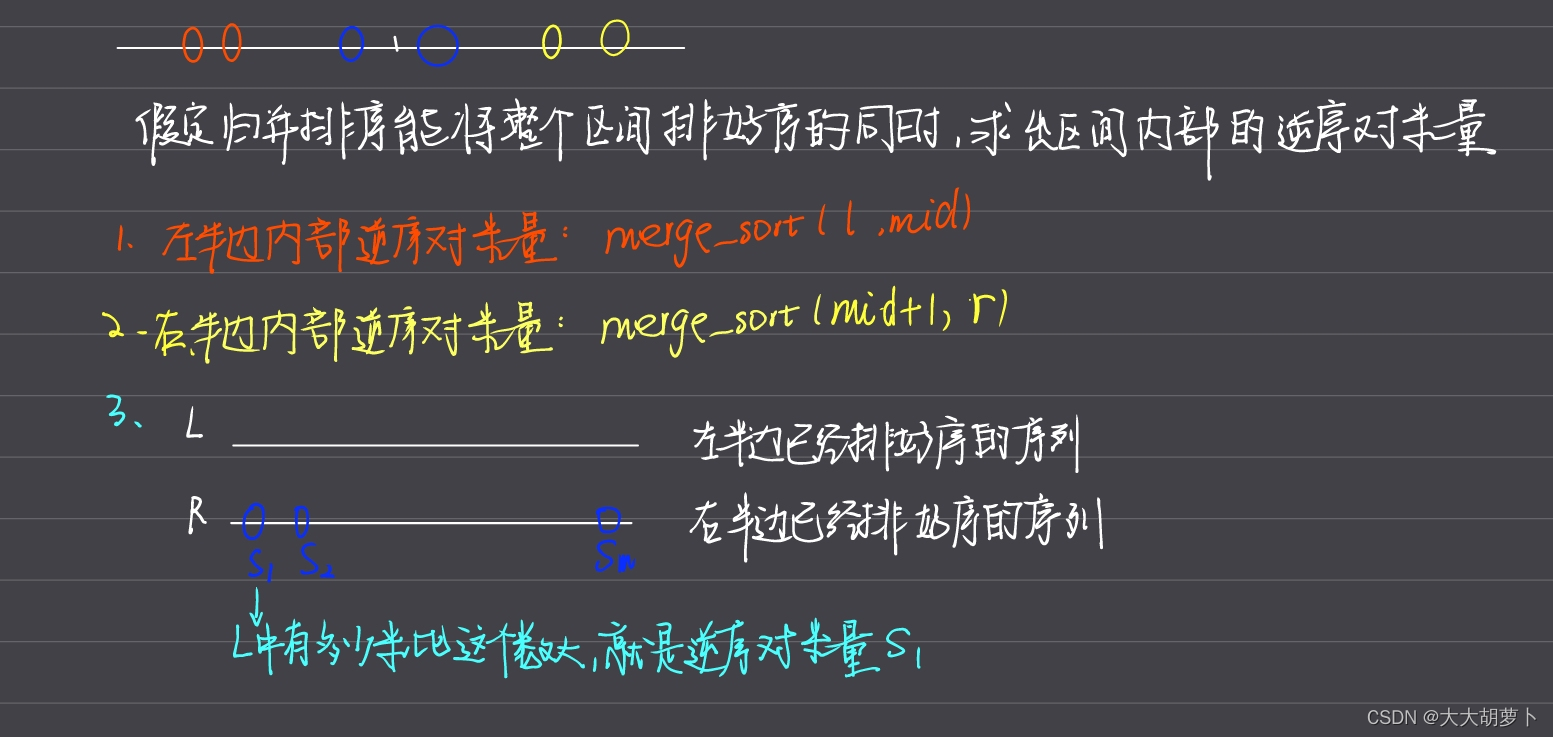 假定归并排序能将整个区间排好序的同时,求出区间内部的逆序对数量
1. 左半边内部逆序对数量: merge_sort(l,mid)
2-右半边内部逆序对数量: merge_sort(mid+1, r)
3、
L 左半边已经排好序的序列
R 右半边已经排好序的序列
S1 S2 Sm
L中有多少数比这个数大,就是逆序对数量S1
CSDN @大大胡萝卜